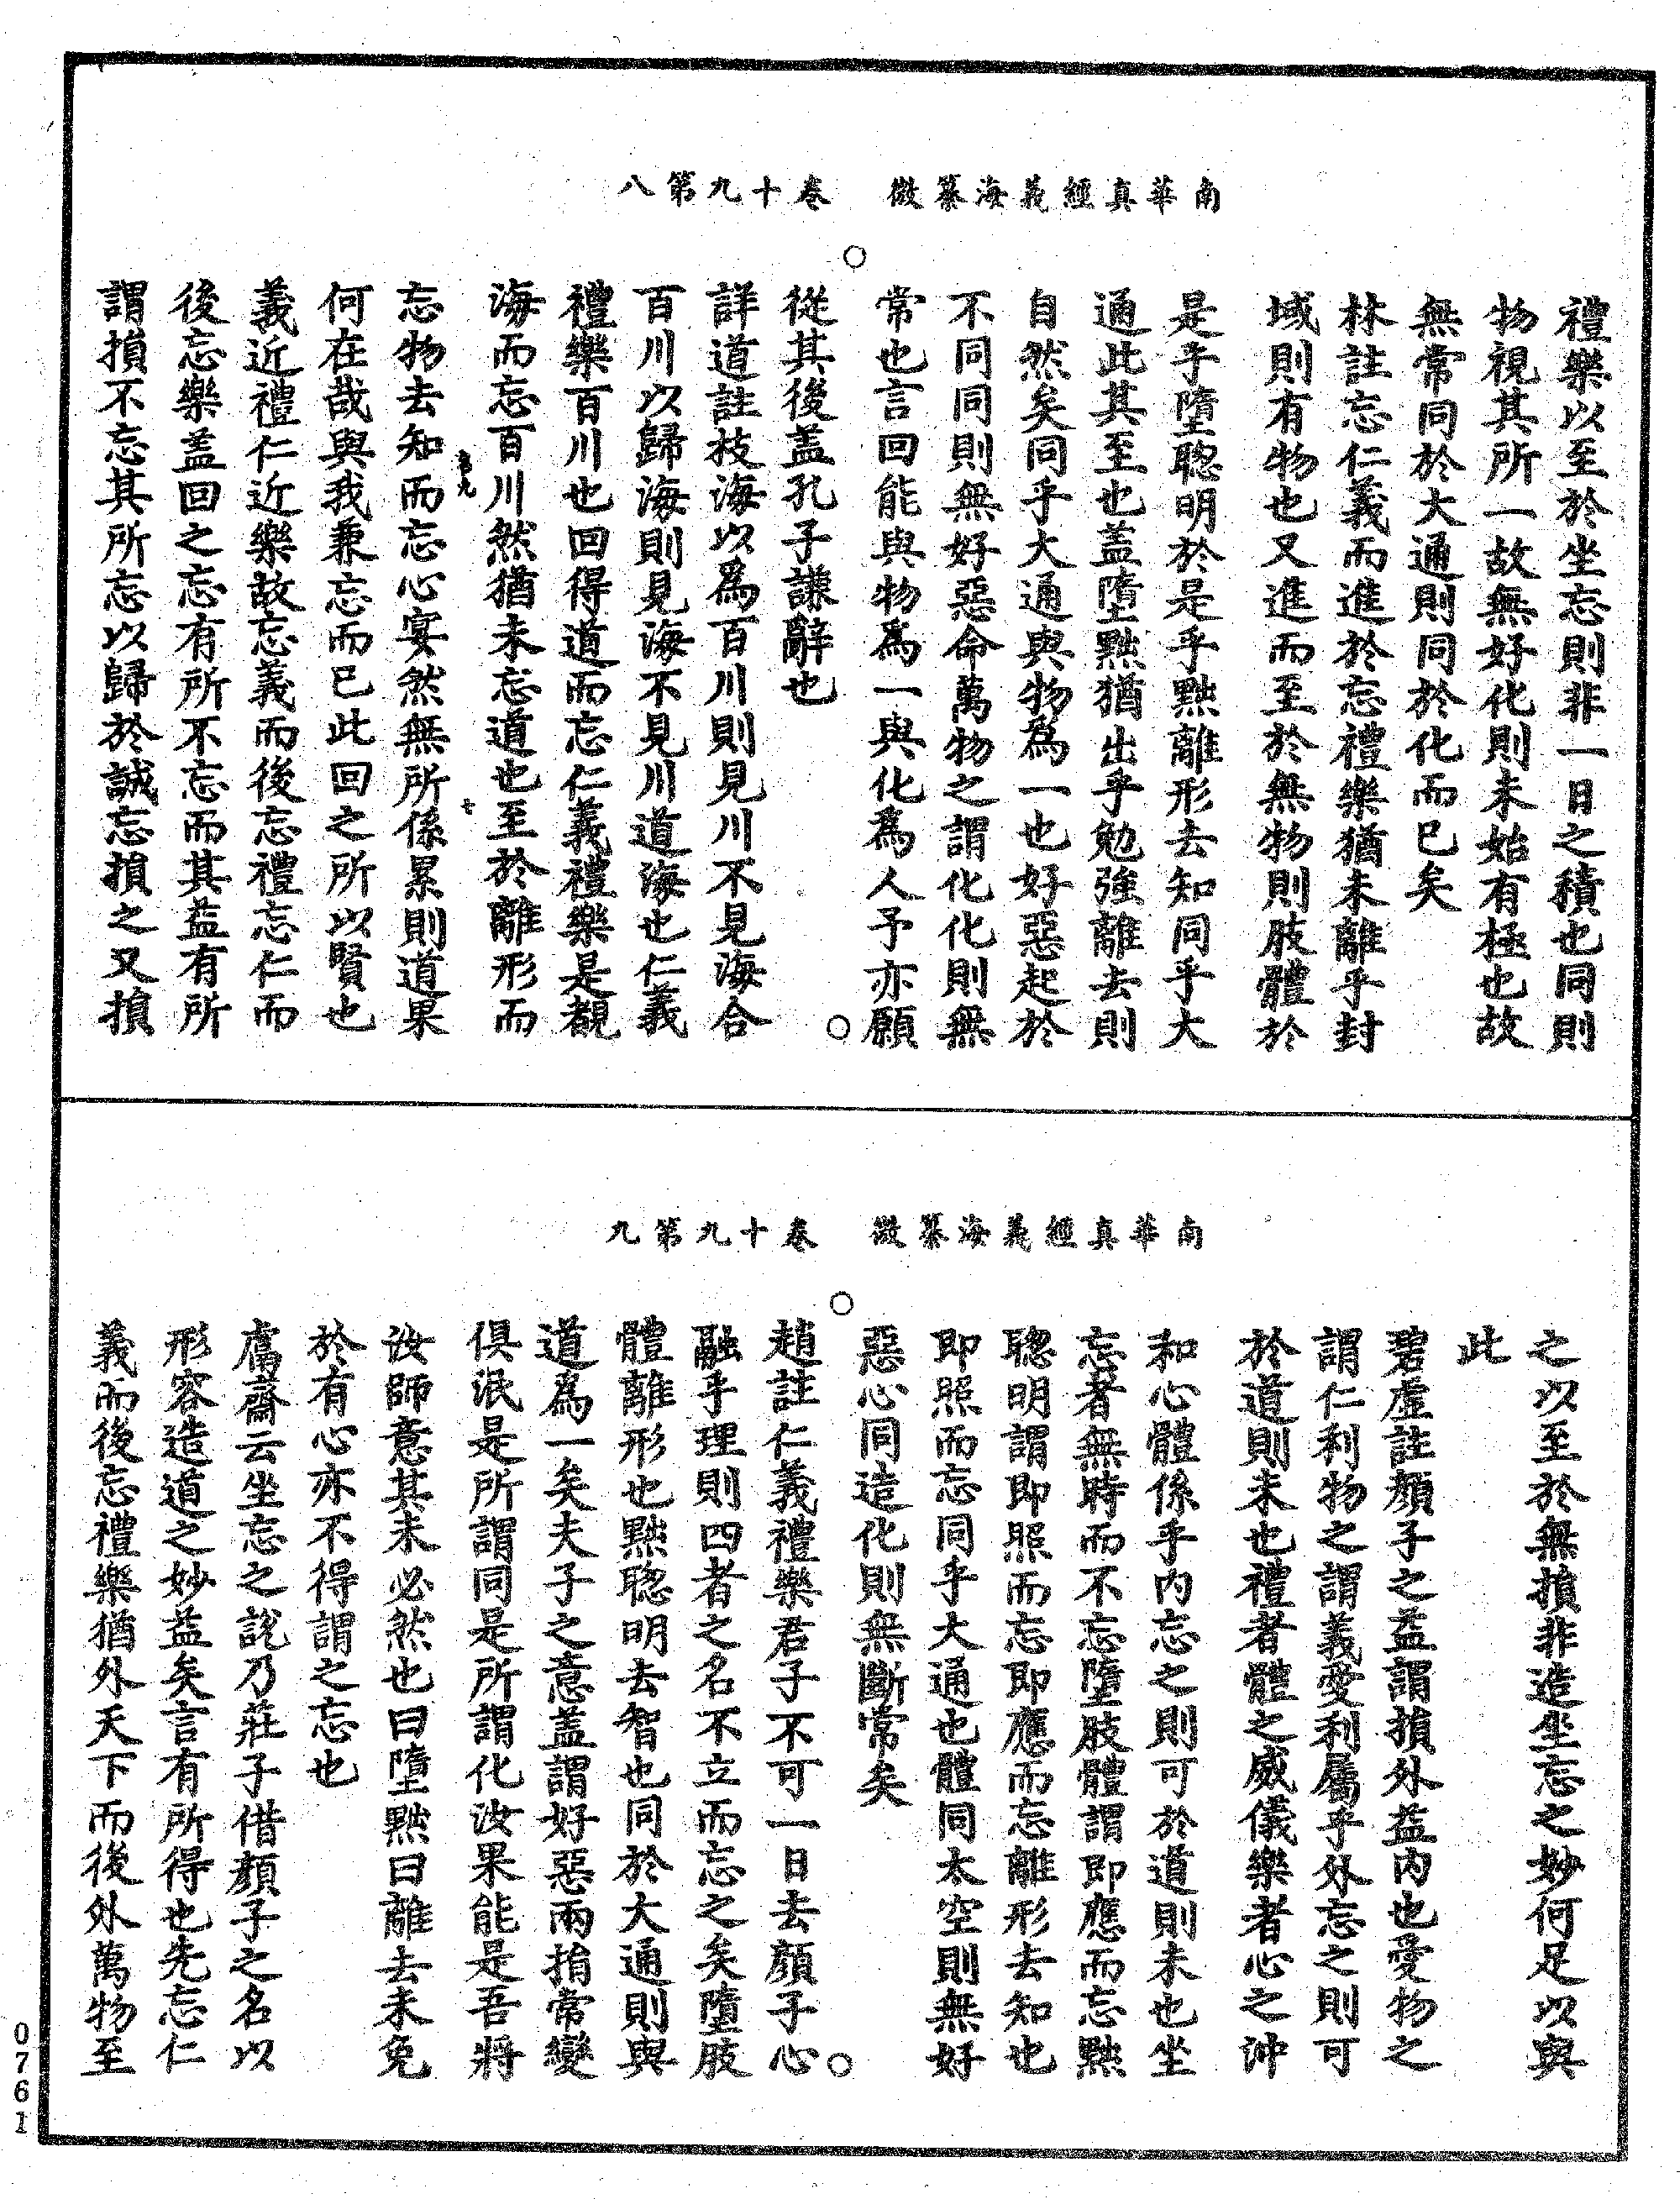 南華真經義海纂微　卷十九第八
禮樂以至於坐忘則非一日之積也同則
物視其所一故無好化則未始有極也故
無常同於大通則同於化而已矣
林註忘仁義而進於忘禮樂猶未離乎封
域則有物也又進而至於無物則肢體於
是乎墮聦明於是乎黜離形去知同乎大
通此其至也盖墮黜猶出乎勉強離去則
自然矣同乎大通與物為一也好惡起於
不同同則無好惡命萬物之謂化化則無
常也言回能與物為一與化為人予亦願
從其後盖孔子謙辭也
詳道註枝海以為百川則見川不見海合
百川以歸海則見海不見川道海也仁義
禮樂百川也回得道而忘仁義禮樂是覩
海而忘百川然猶未忘道也至於離形而
忘物去知而忘心寞然無所係累則道果
何在哉與我兼忘而已此回之所以賢也
義近禮仁近樂故忘義而後忘禮忘仁而
後忘樂盖回之忘有所不忘而其益有所
謂損不忘其所忘以歸於誠忘損之又損
南華真經義海纂微　卷十九第九
之以至於無損非造坐忘之妙何足以與
此
碧虛註顏子之益謂損外益内也愛物之
謂仁利物之謂義愛利屬乎外忘之則可
於道則未也禮者體之威儀樂者心之沖
和心體係乎内忘之則可於道則未也坐
忘者無時而不忘墮肢體謂即應而忘黜
聦明謂即照而忘即應而忘離形去知也
即照而忘同乎大通也體同太空則無好
惡心同造化則無斷常矣
趙註仁義禮樂君子不可一日去顏子心
融乎理則四者之名不立而忘之矣墮肢
體離形也黜聦明去智也同於大通則與
道為一矣夫子之意盖謂好惡兩捐常變
俱泯是所謂同是所謂化汝果能是吾將
汝師意其未必然也曰墮黜曰離去未免
於有心亦不得謂之忘也
鬳齋云坐忘之說乃莊子借顏子之名以
形容造道之妙益矣言有所得也先忘仁
義而後忘禮樂猶外天下而後外萬物至
0761